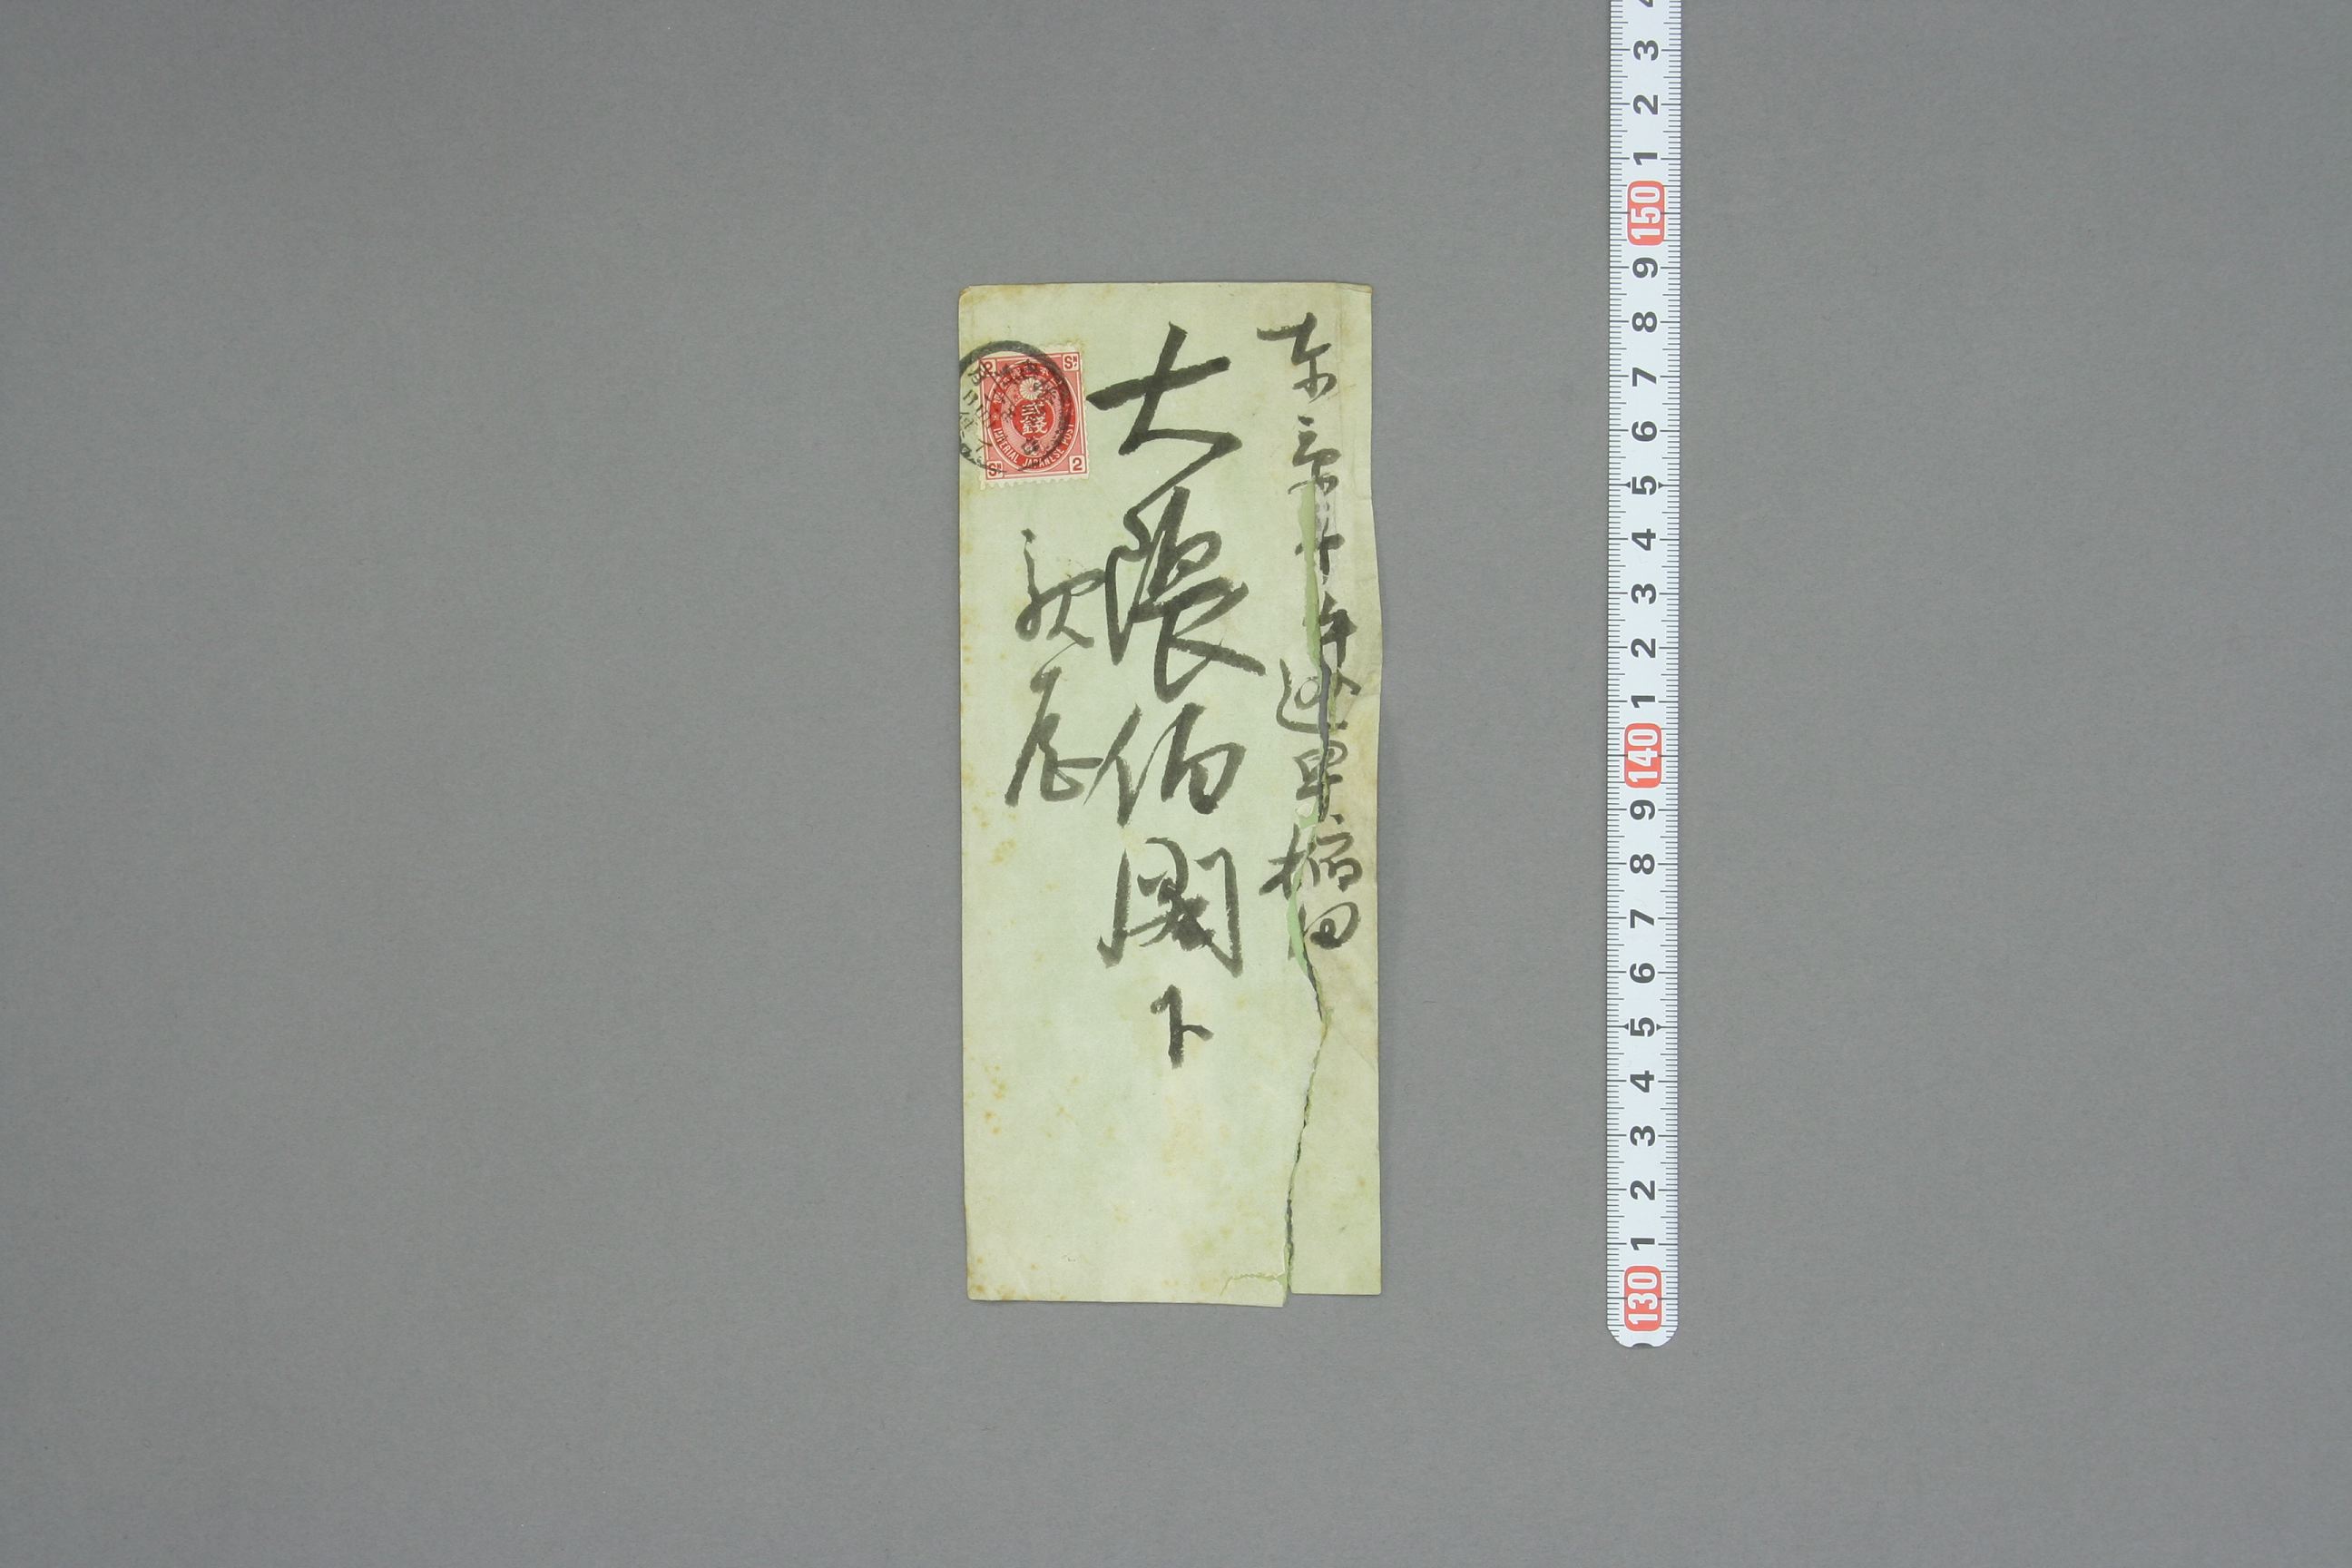 東京牛込早稲田
大隈伯閣下
親展
弐銭
IMPERIAL JAPANESE POST
Sn
2
Sn
4
3
2
1
150
9
8
7
6
5
4
3
2
1
140
9
8
7
6
5
4
3
2
1
130